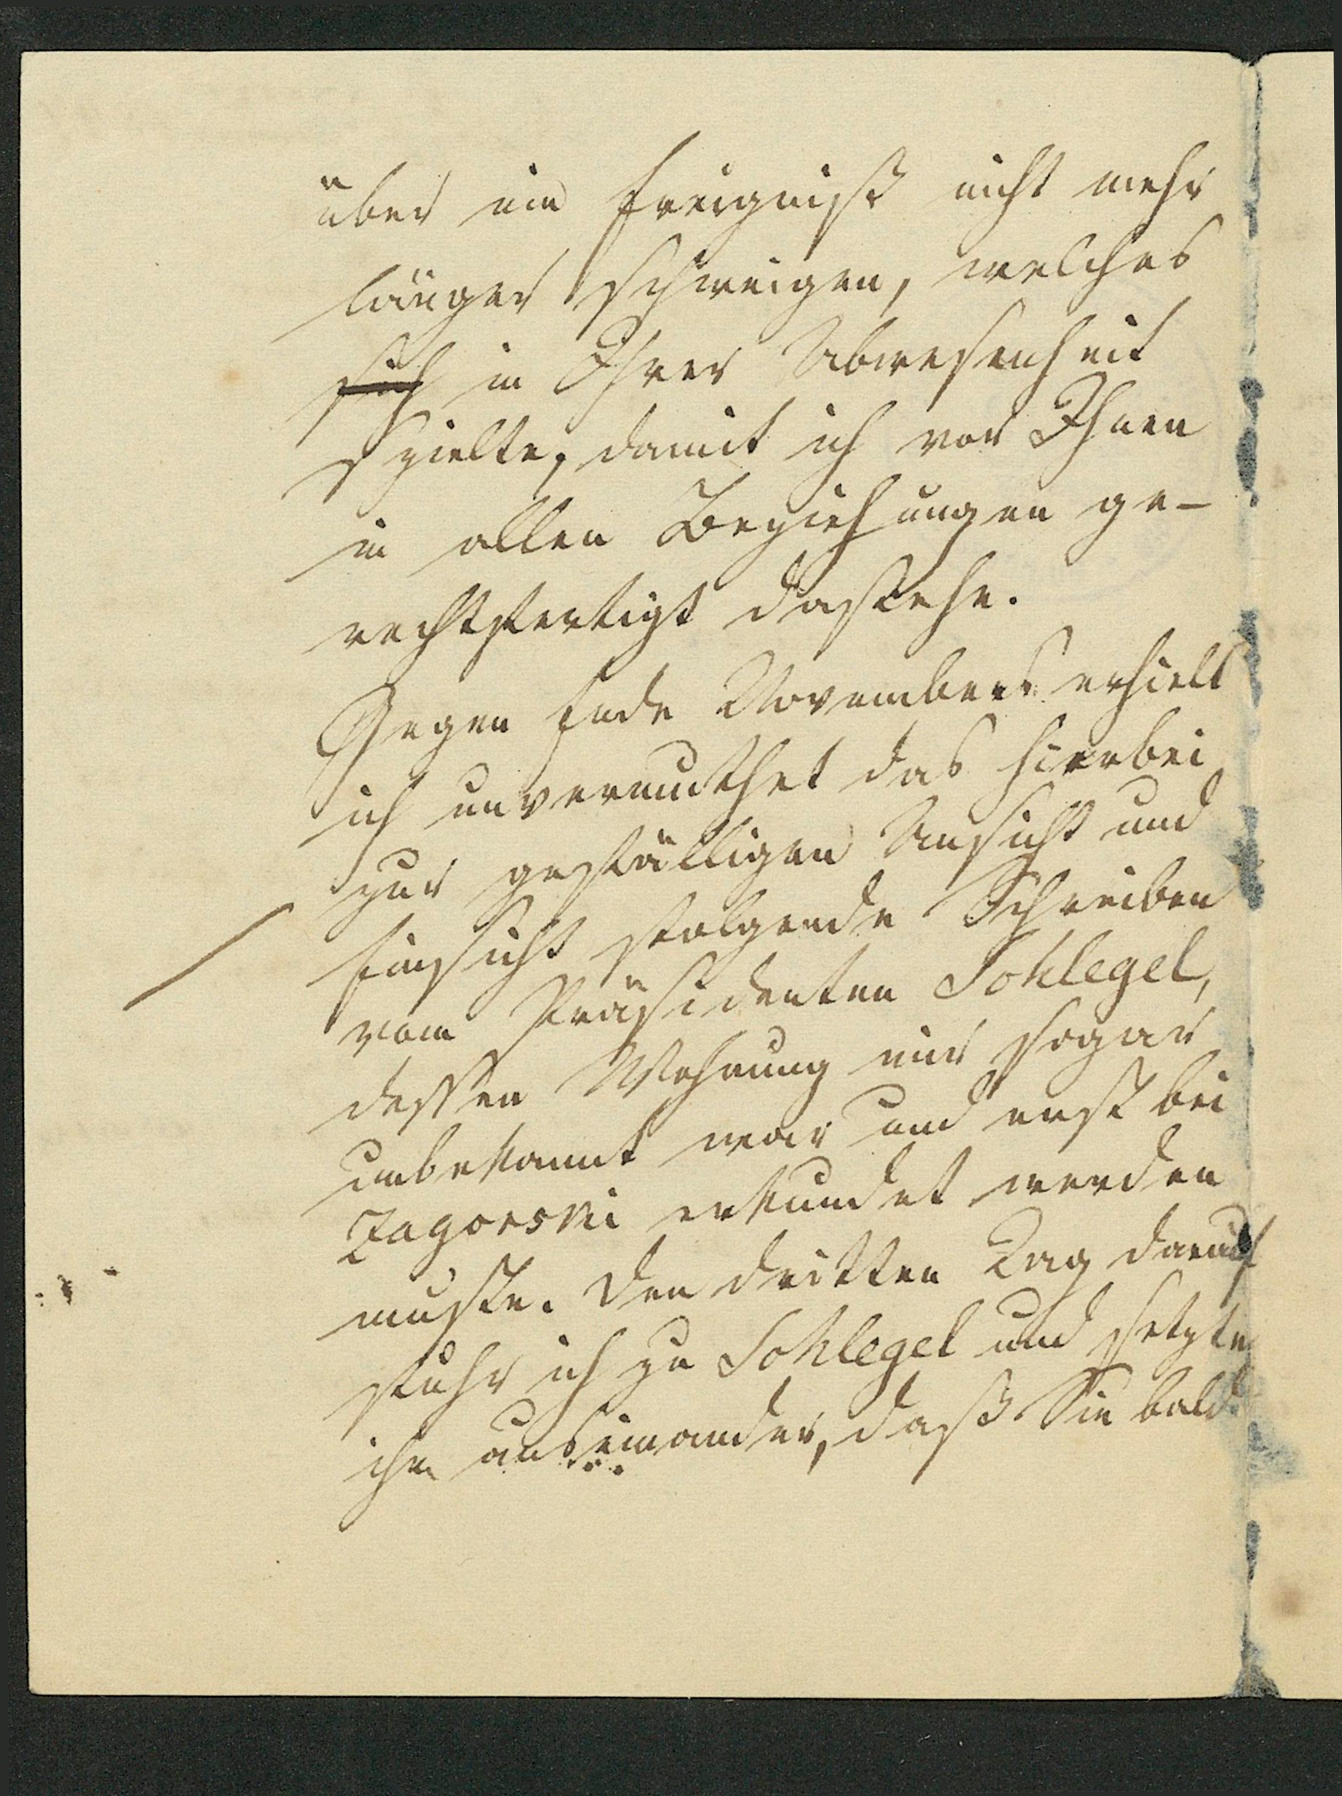 über ein Ereigniß nicht mehr
länger schweigen, welches
sich in Ihrer Abwesenheit
spielte, damit ich vor Ihnen
in allen Beziehungen ge-
rechtfertigt dastehe.
Gegen Ende Novembers erhielt
ich unvermuthet das hierbei
zur gefälligen Ansicht und
Einsicht folgende Schreiben
vom Präsidenten Schlegel,
dessen Wohnung mir sogar
unbekannt war und erst bei
Zagorski erkundet werden
mußte. Den dritten Tag darauf
fuhr ich zu Schlegel und setzte
ihm auseinander, daß Sie bald